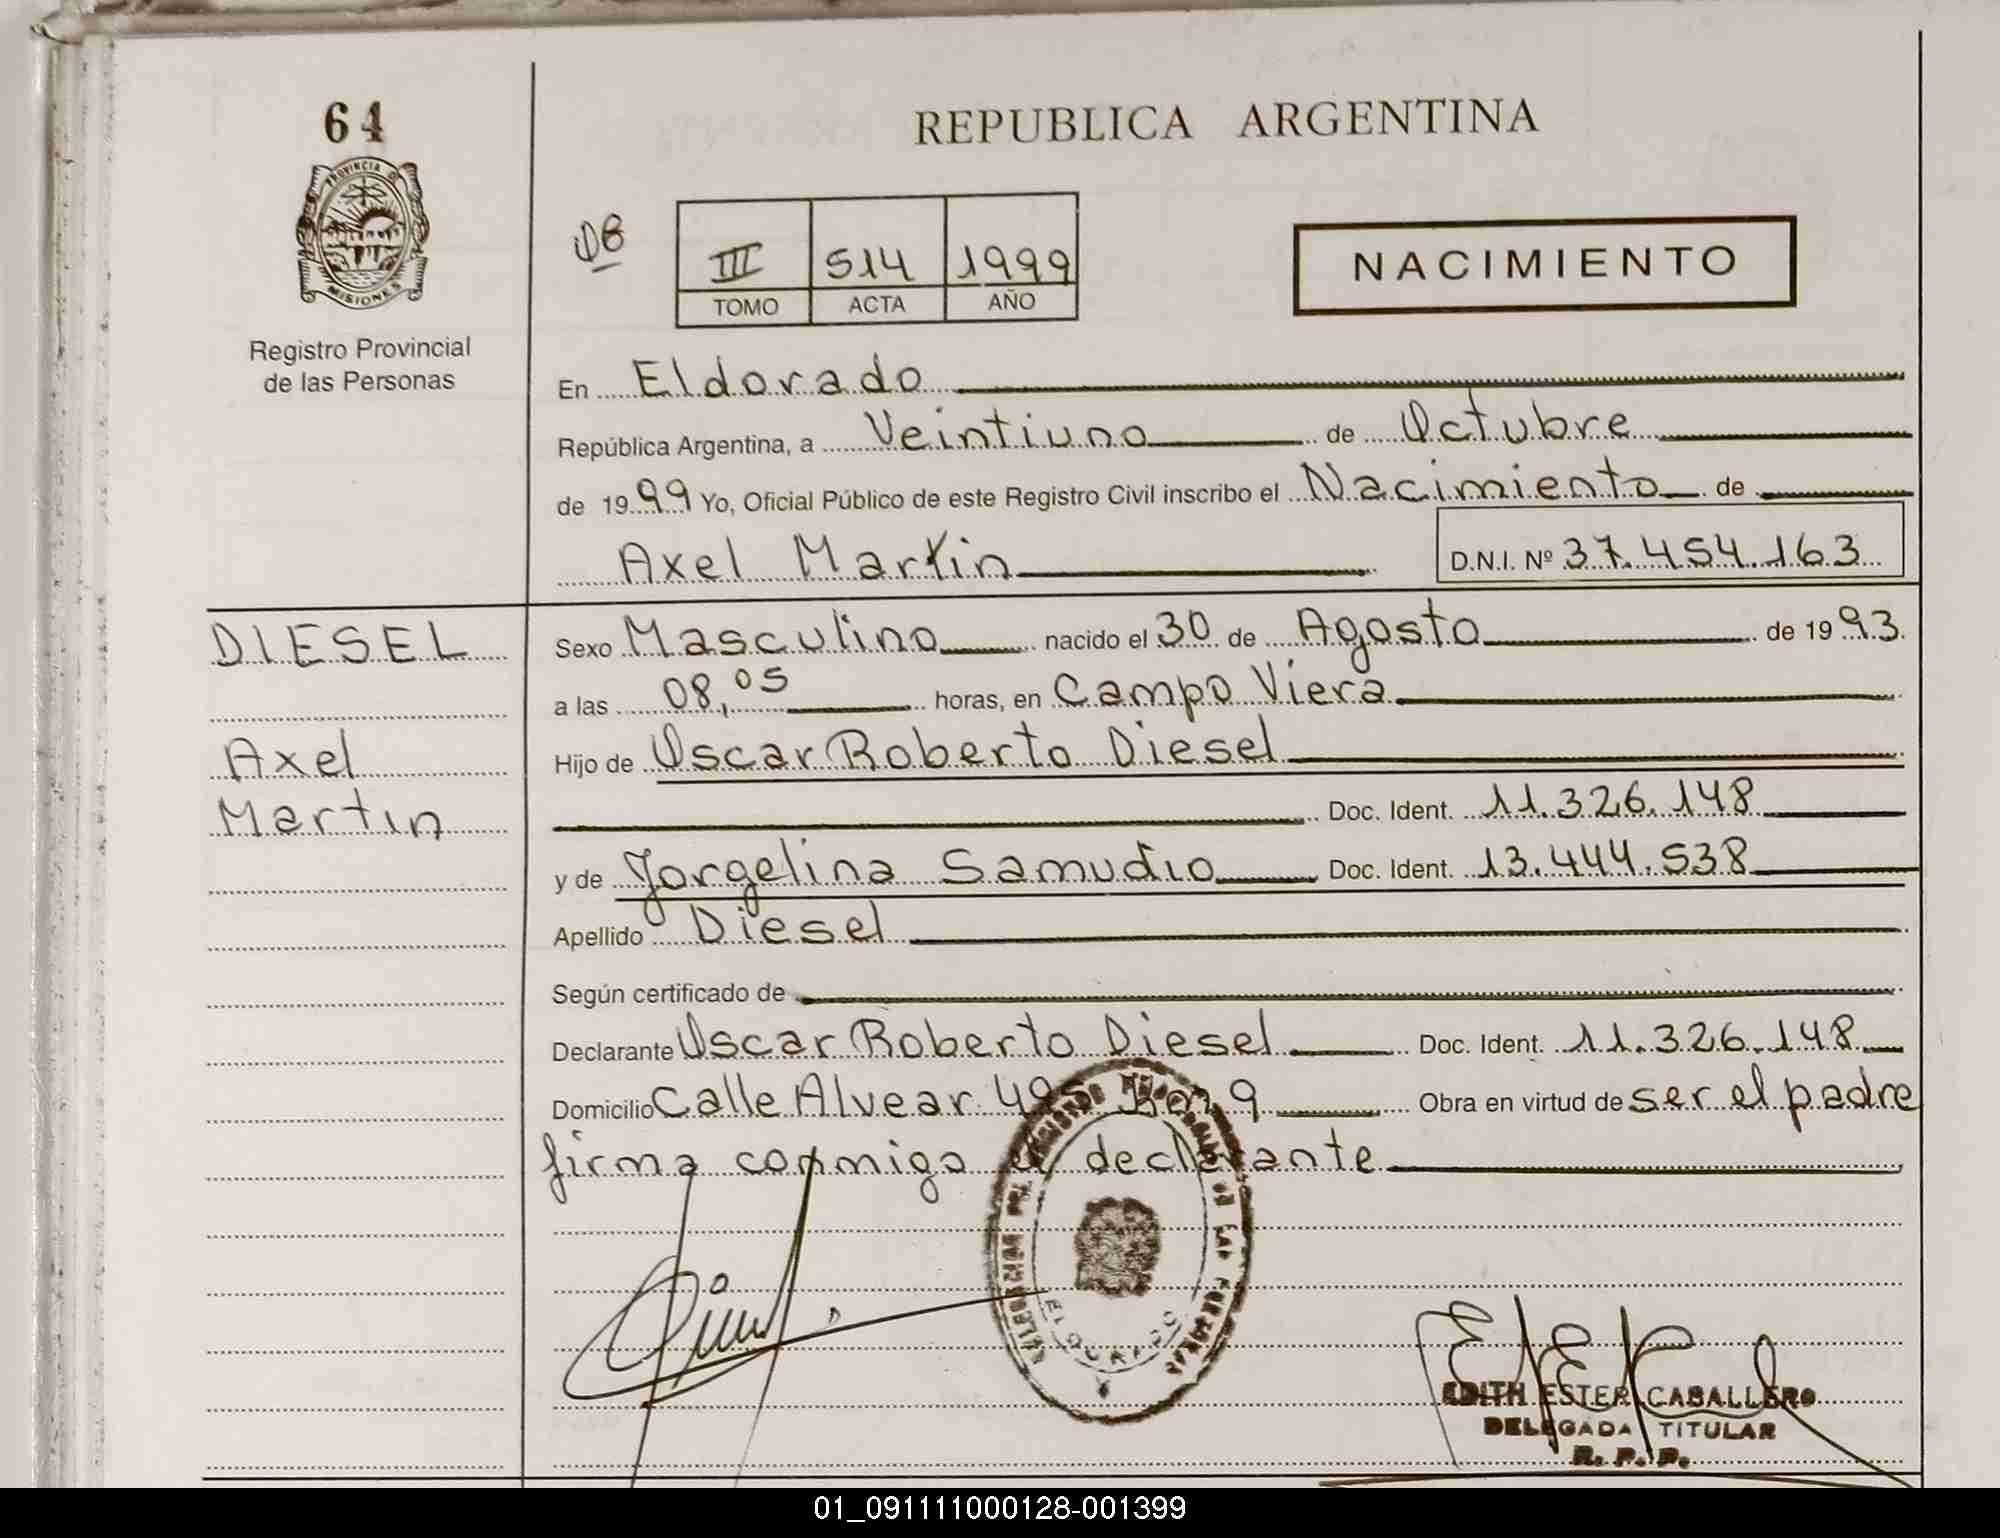 64
PROVINCIA DE
MISIONES
Registro Provincial
de las Personas
REPUBLICA ARGENTINA
III 514 1999
TOMO ACTA AÑO
NACIMIENTO
En Eldorado
República Argentina, a Veintiuno de Octubre
de 1999 Yo, Oficial Público de este Registro Civil inscribo el Nacimiento de
Axel Martin D.N.I. Nº 37.454.163
DIESEL
Axel
Martin
Sexo Masculino nacido el 30 de Agosto de 1993
a las 08,05 horas, en Campo Viera
Hijo de Oscar Roberto Diesel
Doc. Ident. 11.326.148
y de Jorgelina Samudio Doc. Ident. 13.444.538
Apellido Diesel
Según certificado de
Declarante Oscar Roberto Diesel Doc. Ident. 11.326.148
Domicilio Calle Alvear 495 Km 9 Obra en virtud de ser el padre
firma conmigo el declarante
ELDORADO
EDITH ESTER CABALLERO
DELEGADA TITULAR
R. P. P.
01_091111000128-001399